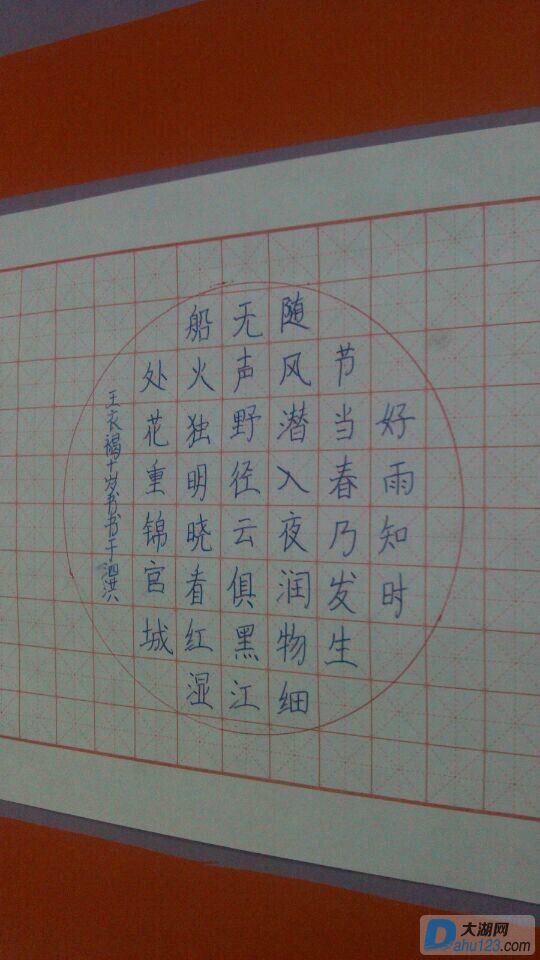 好雨知时
节当春乃发生
随风潜入夜润物细
无声野径云俱黑江
船火独明晓看红湿
处花重锦官城
王衣褐十岁书书于泗洪
大湖网
Dahu123.com